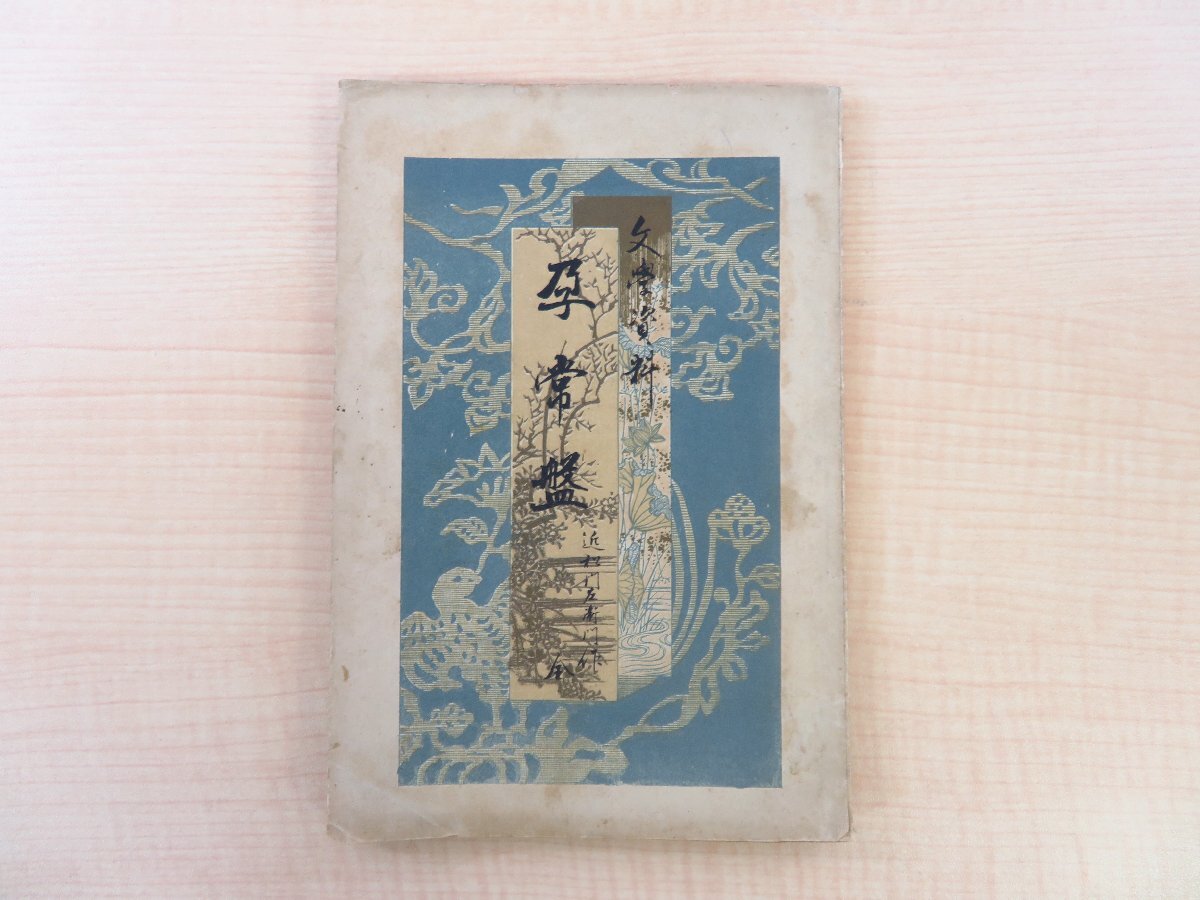 文學資料
孕常盤
近松門左衛門作
全